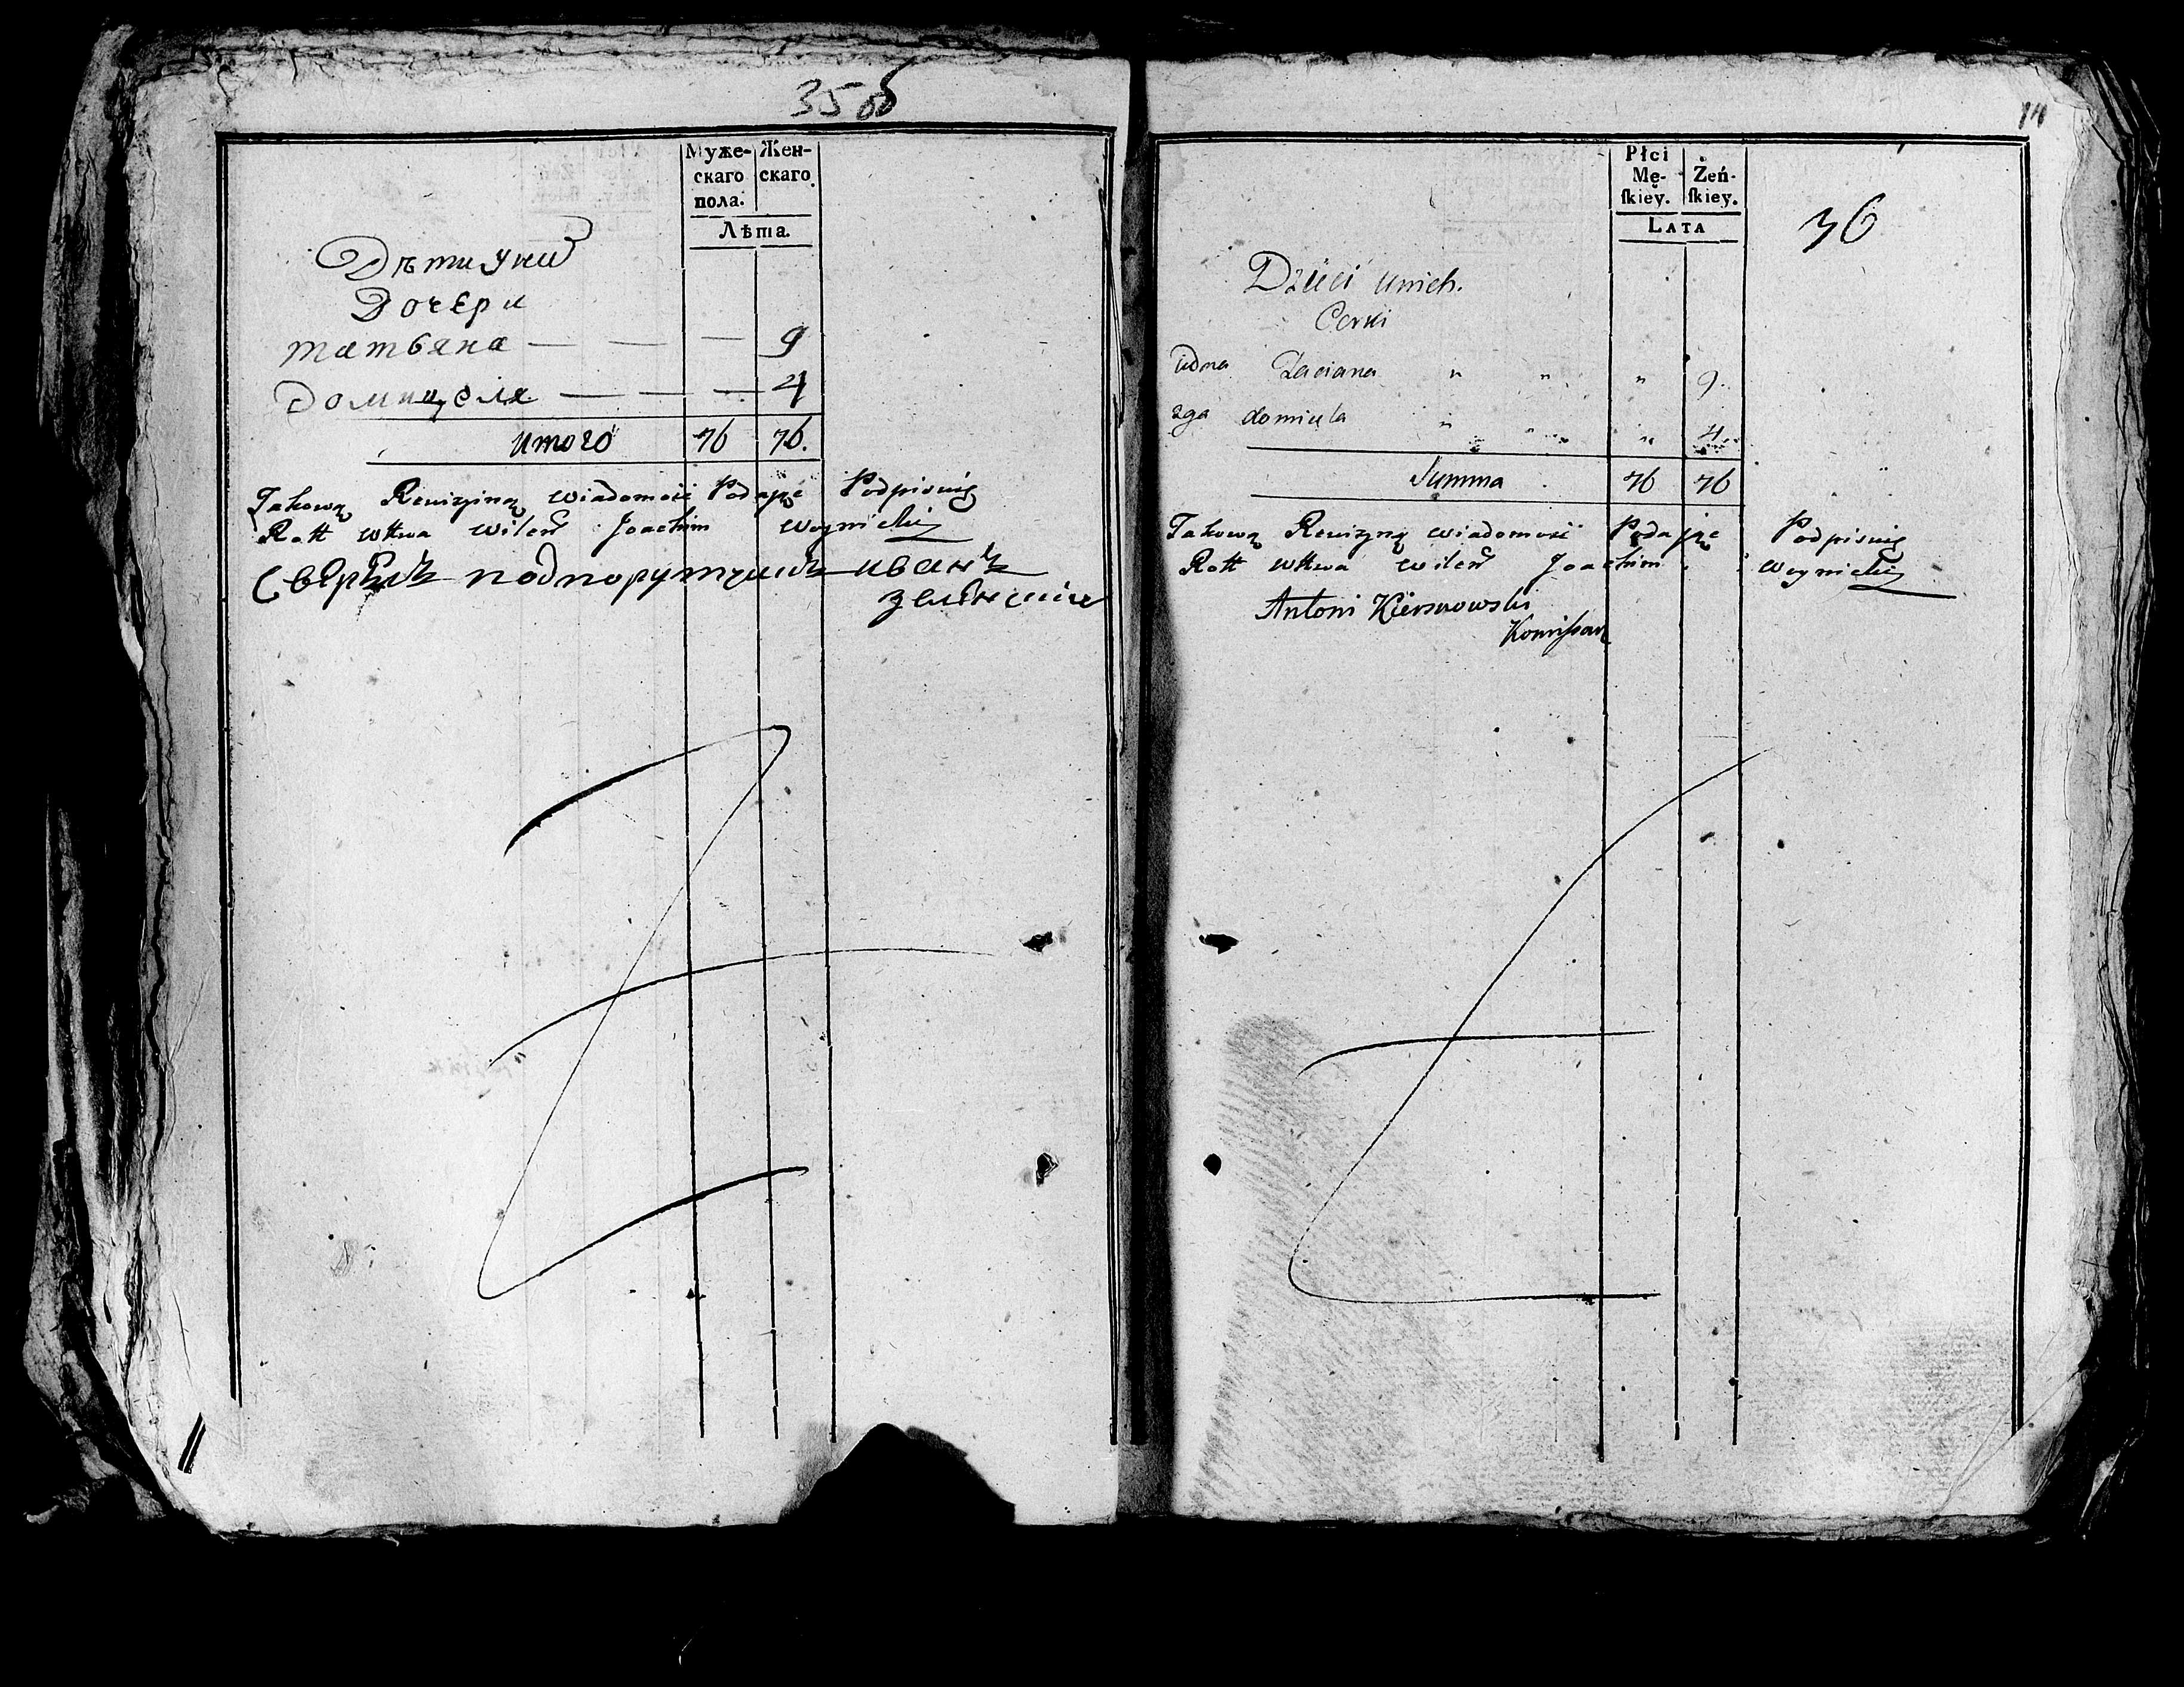 35 об
Муже-
скаго
пола.
Жен-
скаго.
Лѣта.
Дѣти у них
Дочери
татьяна — — — 9
Домицеля — — — 4
итого 76 76.
Takową Rewizyiną wiadomość Podaję Podpisuię
Rott wttwa Wileń Joachim Woynicki
Сверялъ подпорутчикъ иванъ
14
Płci
Mę-
skiey.
Żeń-
skiey.
LATA
36
Dzieci unich.
Corki
iedna Taciana " " " 9.
2ga domicela " " " 4
Summa 76 76
Takową Rewizyną wiadomość Podaję Podpisuię
Rott wttwa Wileń Joachim Woynicki
Antoni Kiersnowski
Komissarz